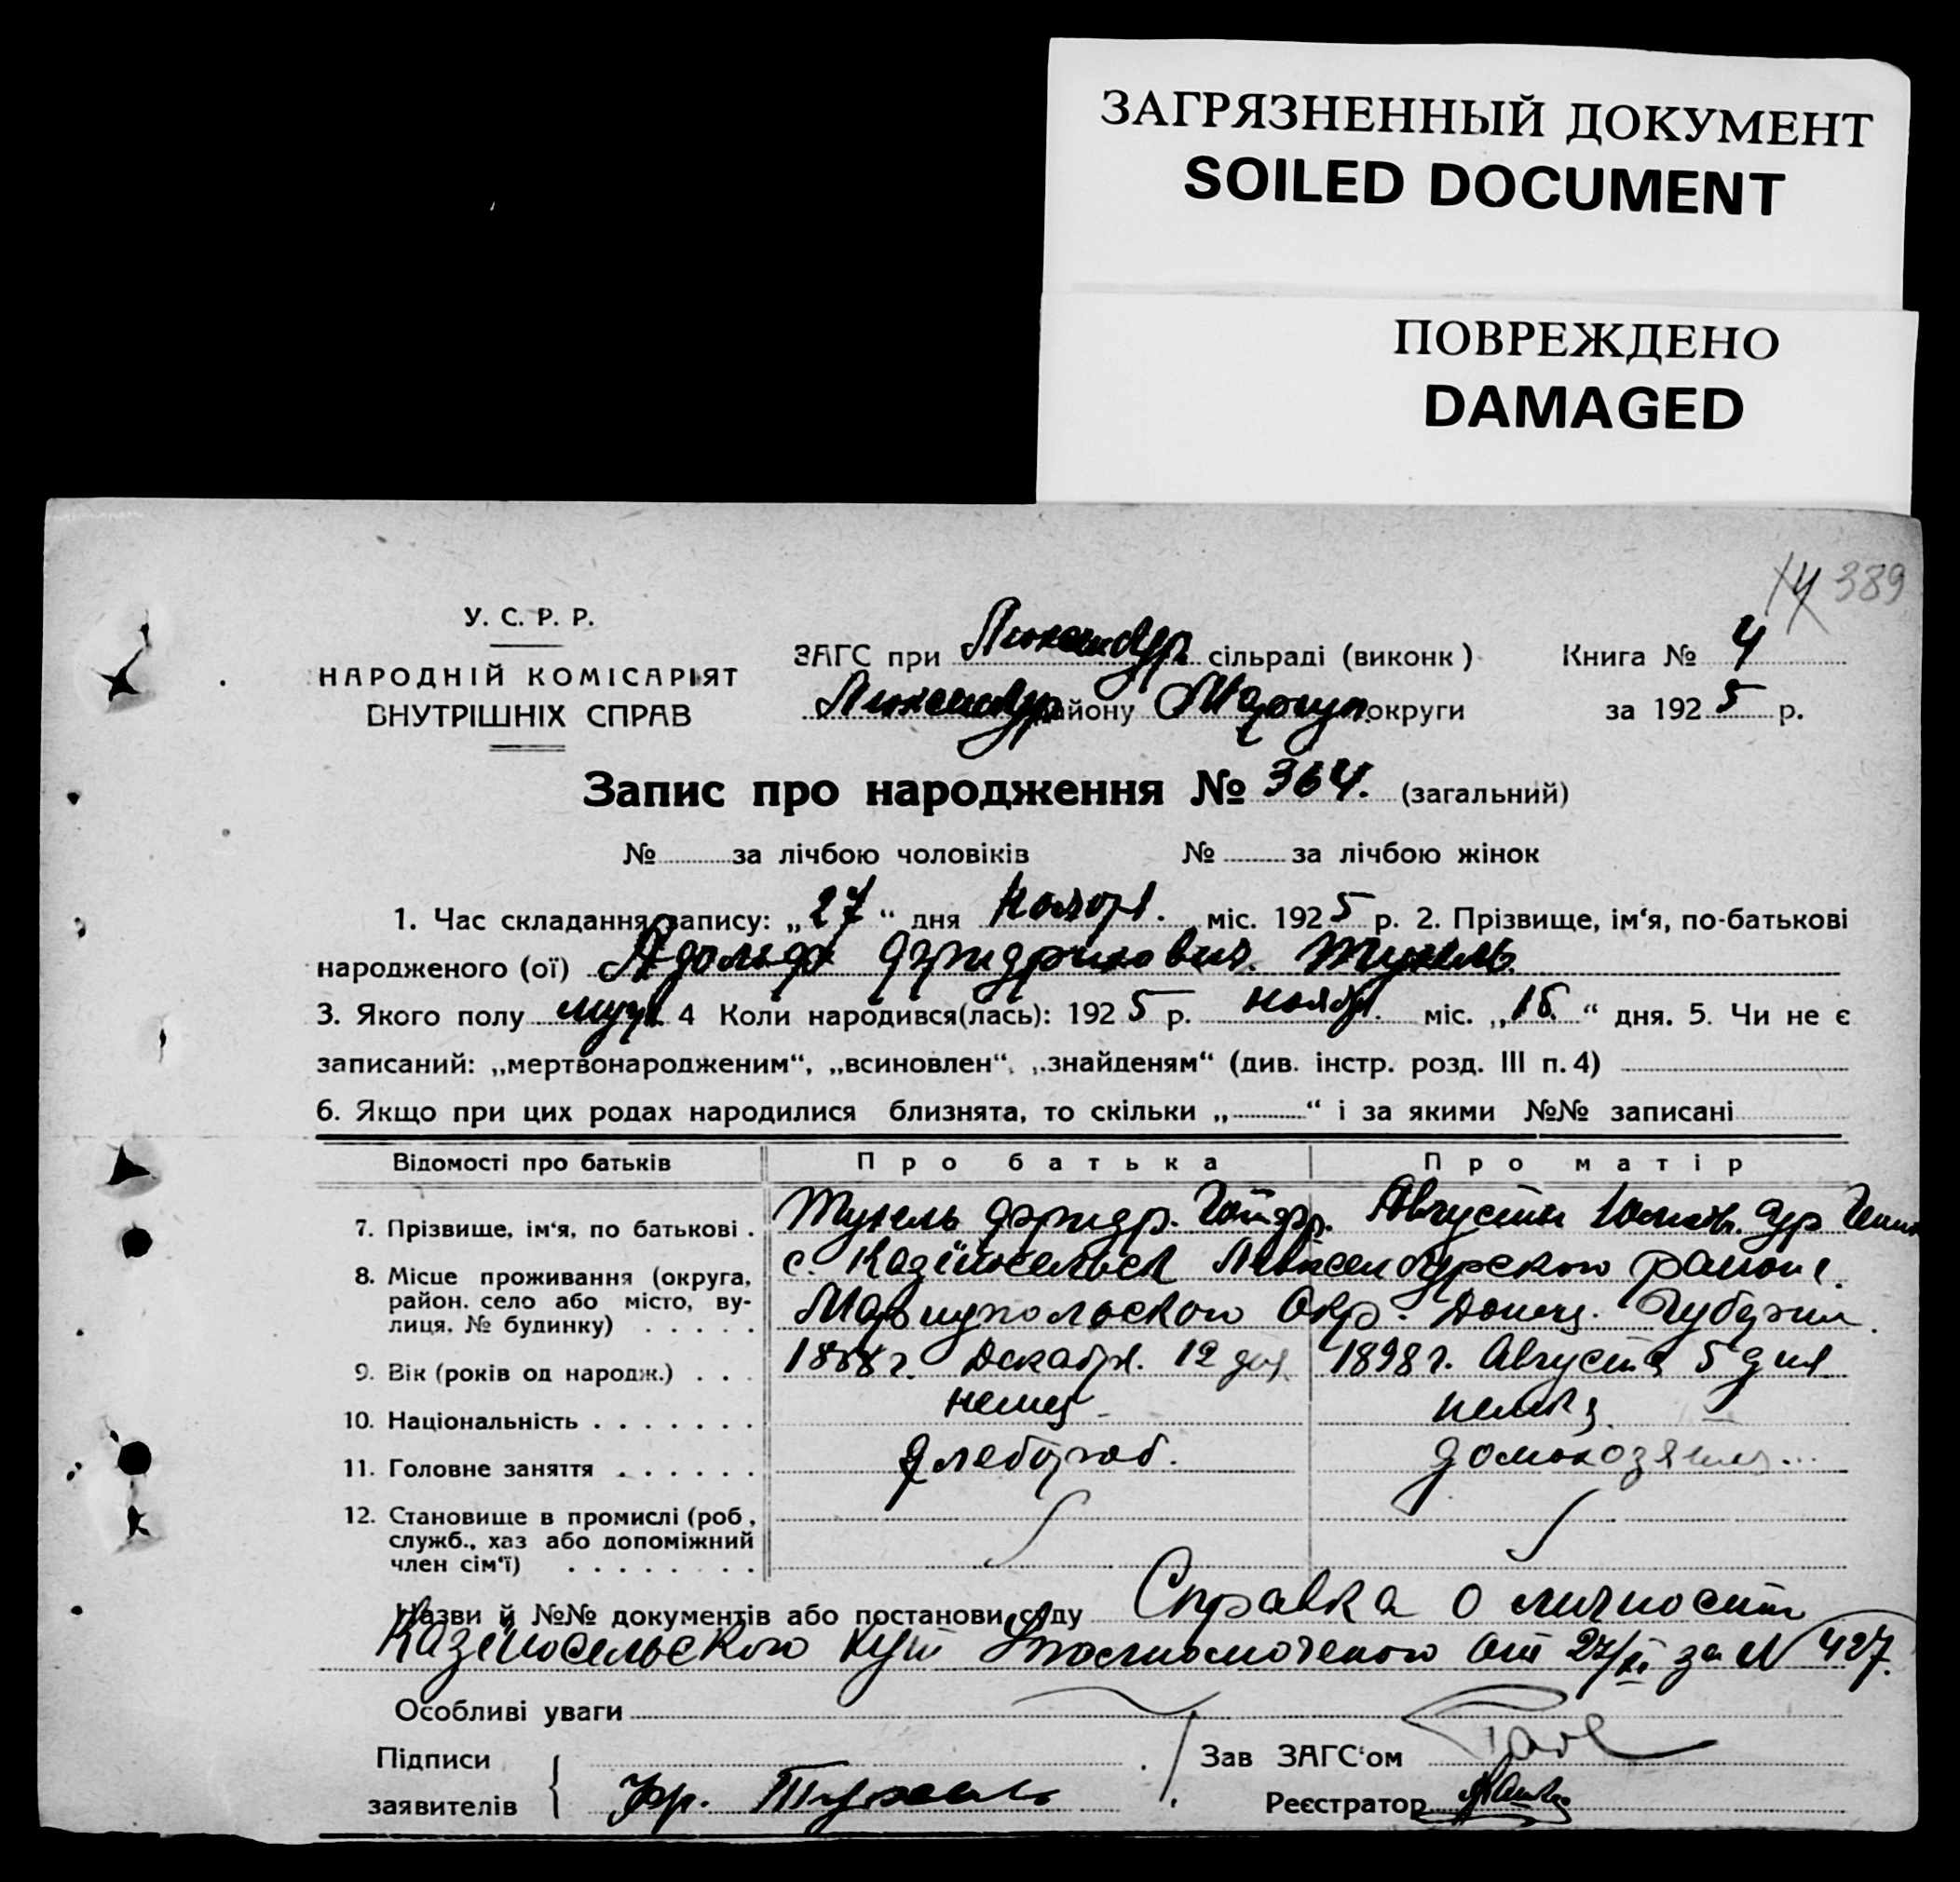 ЗАГРЯЗНЕННЫЙ ДОКУМЕНТ
SOILED DOCUMENT
ПОВРЕЖДЕНО
DAMAGED
389
У. С. Р. Р.
НАРОДНІЙ КОМІСАРІЯТ
ВНУТРІШНІХ СПРАВ
ЗАГС при сільраді (виконк) Книга № 4
району Мариуп. округи за 1925 р.
Запис про народження № 364. (загальний)
№ за лічбою чоловіків № за лічбою жінок
1. Час складання запису: „27“ дня Ноябр. міс. 1925 р. 2. Прізвище, ім‘я, по-батькові
народженого (ої) Адольф Фридрихович. Тукель.
3. Якого полу муж. 4 Коли народився(лась): 1925 р. ноябр. міс. „ “ дня. 5. Чи не є
записаний: „мертвонародженим“, „всиновлен“, „знайденям“ (див. інстр. розд. III п. 4)
6. Якщо при цих родах народилися близнята, то скільки „ “ і за якими №№ записані
Відомості про батьків Про батька Про матір
7. Прізвище, ім‘я, по батькові . Тукель Фридр.
8. Місце проживання (округа, район, село або місто, вулиця, № будинку) . . . . . с. района.
Мариупольского Окр. Донец. Губернии.
9. Вік (років од народж.) . . . Декабря. 12 дня 1898 г. Августа 5 дня
10. Національність . . . . . . . немец немка
11. Головне заняття . . . . . . хлебороб. домохозяйка
12. Становище в промислі (роб, служб., хаз або допоміжний член сім‘ї) . . . . . . . .
Назви й №№ документів або постанови суду Справка о личности
от 27/XI за N 427.
Особливі уваги
Підписи
заявителів Фр. Тукель
Зав ЗАГС‘ом
Реєстратор